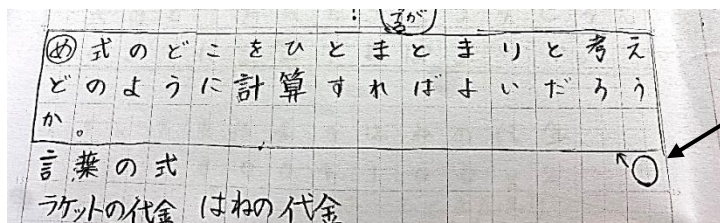 るが
め 式のどこをひとまとまりと考え
どのように計算すればよいだろう
か。
言葉の式
ラケットの代金 はねの代金